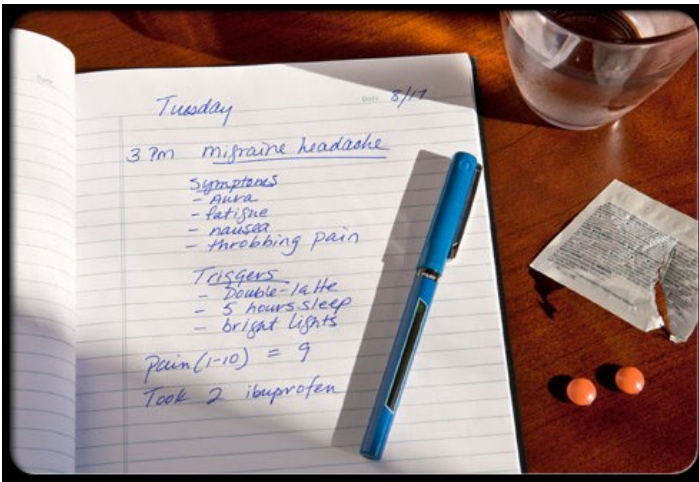 Tuesday
Date 8/17
3 PM migraine headache
Symptoms
- Aura
- fatigue
- nausea
- throbbing pain
Triggers
- Double-latte
- 5 hours sleep
- bright lights
Pain (1-10) = 9
Took 2 ibuprofen